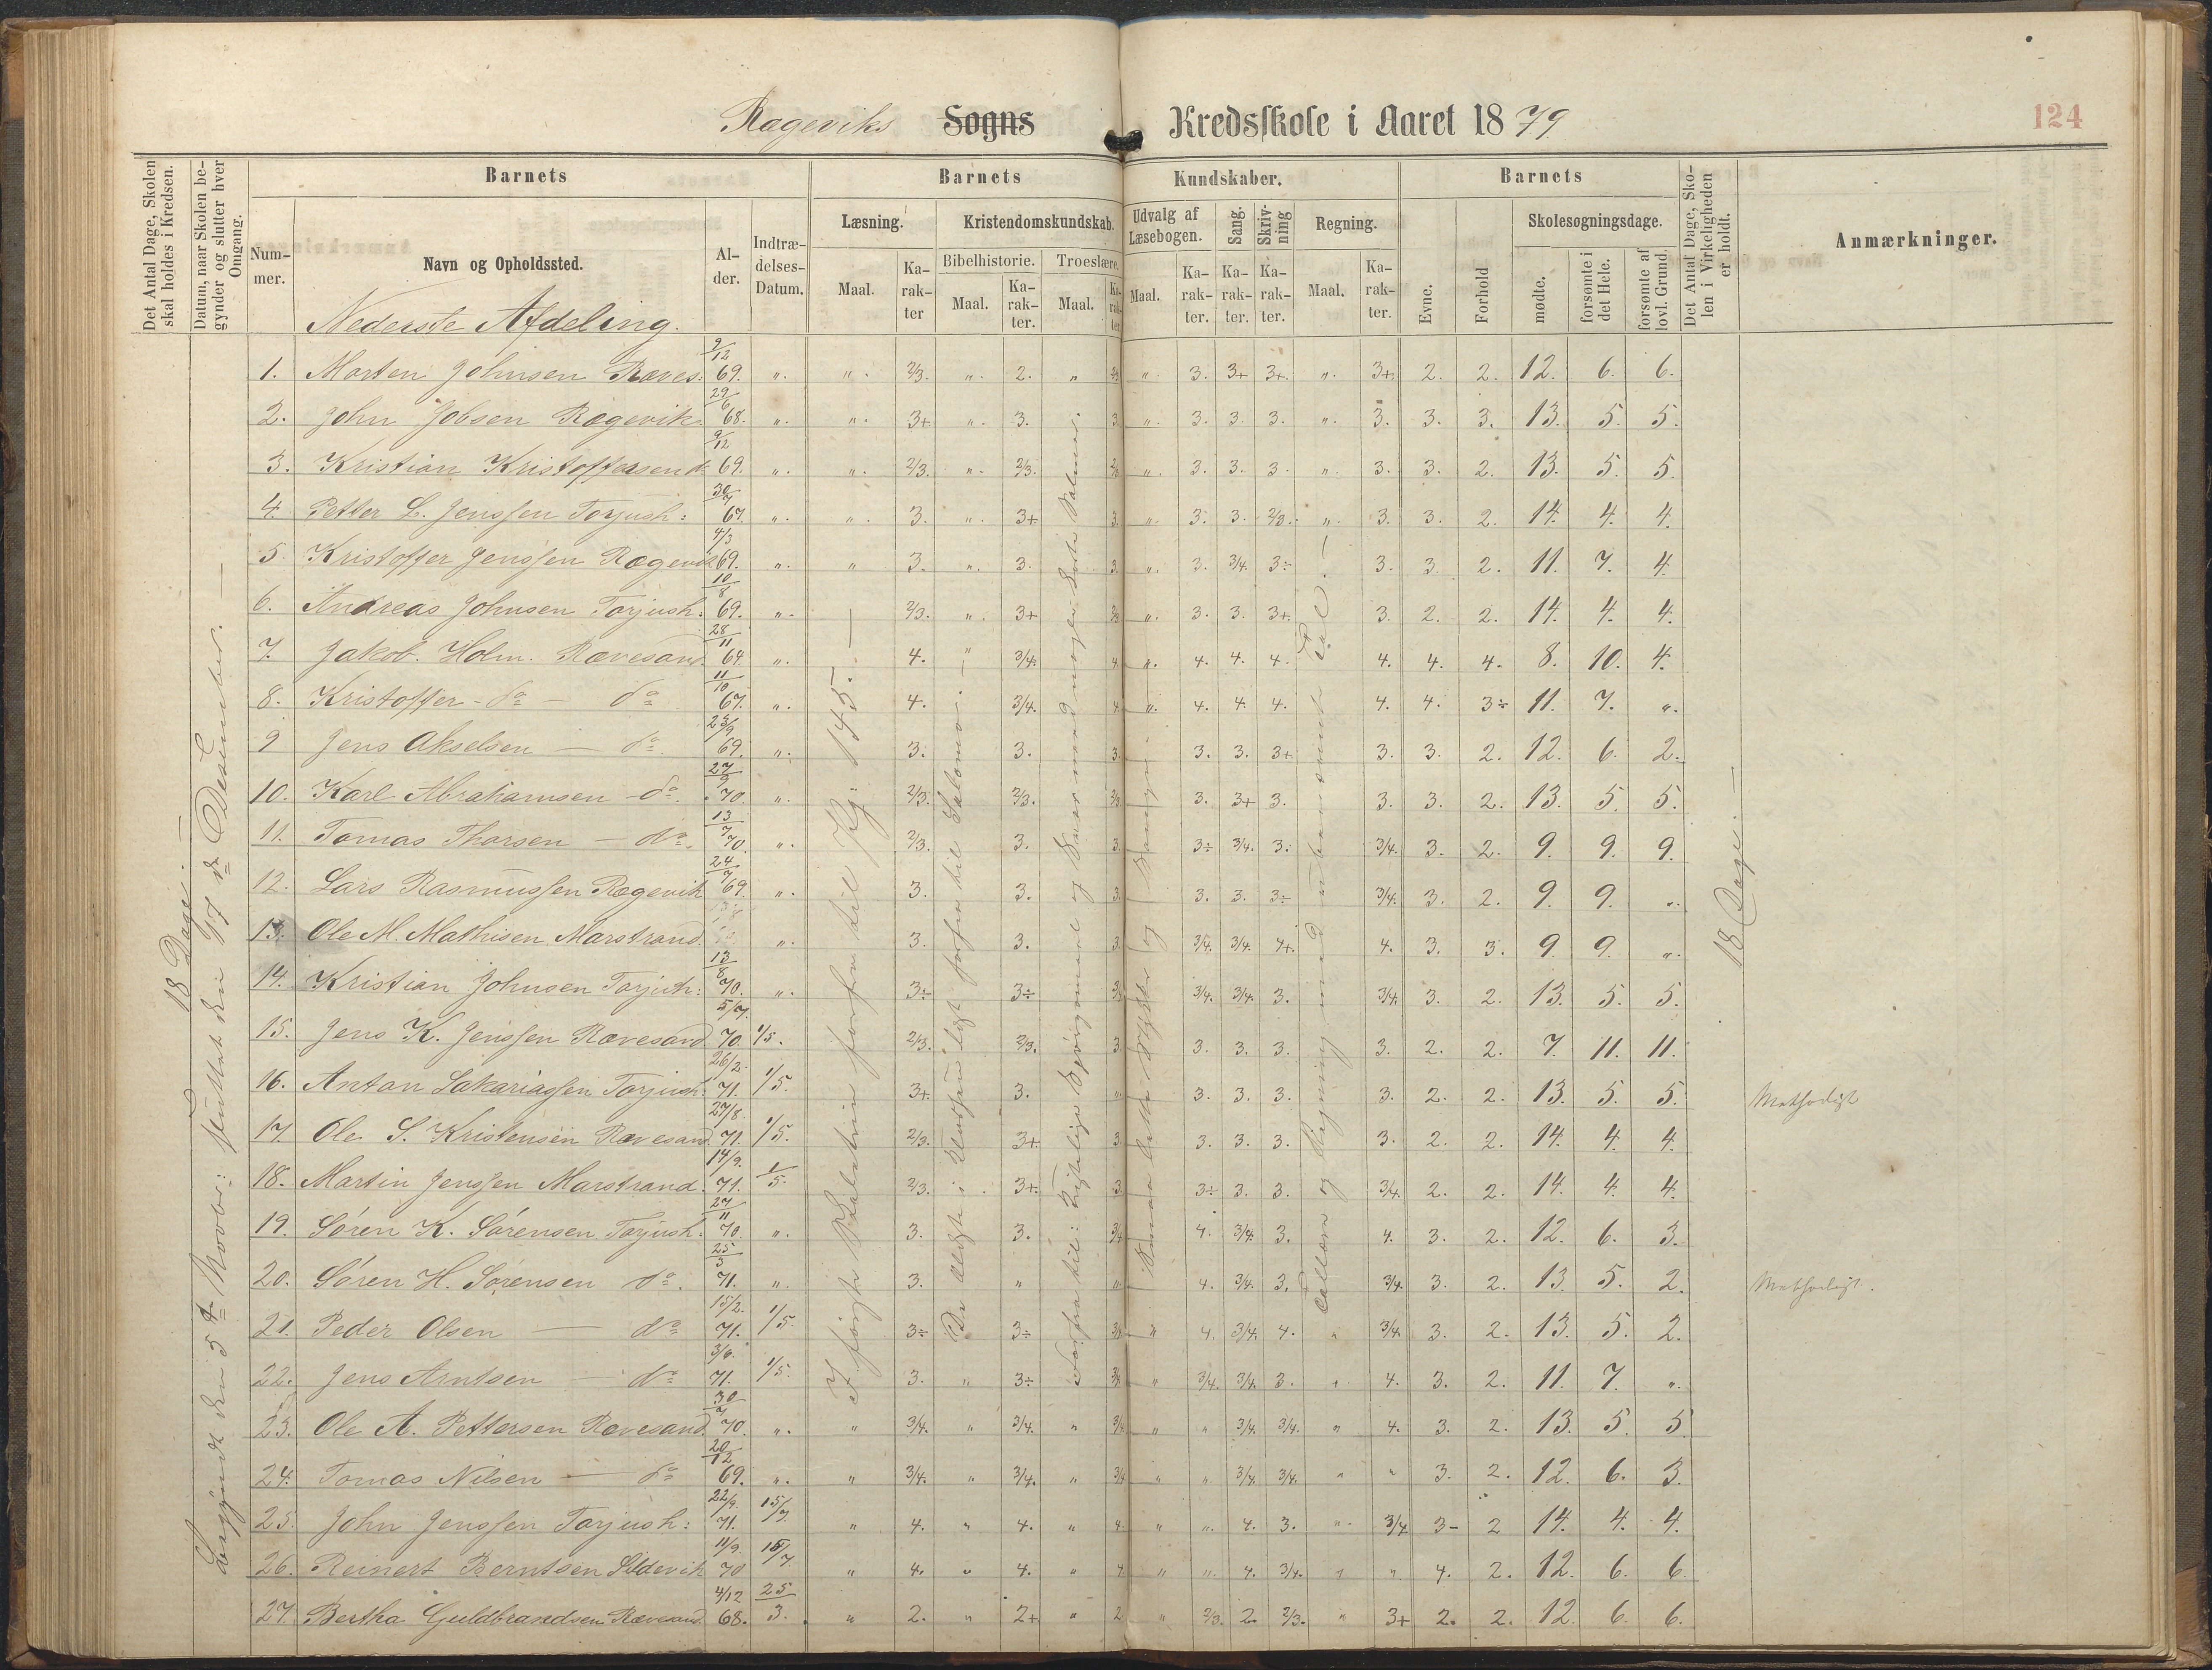 Rageviks Sogns Kredsskole i Aaret 1879
124
Det Antal Dage, Skolen skal holdes i Kredsen.
Datum, naar Skolen begynder og slutter hver Omgang.
Barnets
Barnets Kundskaber.
Barnets
Det Antal Dage, Skolen i Virkeligheden er holdt.
Anmærkninger.
Nummer.
Navn og Opholdssted.
Alder.
Indtrædelses-Datum.
Læsning.
Kristendomskundskab.
Udvalg af Læsebogen.
Sang.
Skrivning
Regning.
Evne.
Forhold
Skolesøgningsdage.
Bibelhistorie.
Troeslære.
Maal.
Karakter
Maal.
Karakter.
Maal.
Karakter
Maal.
Karakter.
Karakter.
Karakter.
Maal.
Karakter.
mødte.
forsømte i det Hele.
forsømte af lovl. Grund.
Nederste Afdeling.
18 Dage. —
18 Dage. —
1. Morten Johnsen Ræves: 9/12 69. ". ". 2/3. ". 2. " 2/3 ". 3. 3+ 3+. ". 3+. 2. 2. 12. 6. 6.
2. John Jobsen Ragevik. 29/6 68. ". ". 3+ ". 3. 3. ". 3. 3. 3. ". 3. 3. 3. 13. 5. 5.
3. Kristian Kristoffersen do 9/12 69. ". ". 2/3. ". 2/3. 2/3 ". 3. 3. 3. ". 3. 3. 2. 13. 5. 5.
4. Petter L. Jenssen Torjush: 30/7 67. ". ". 3. ". 3+ 3. ". 3. 3. 2/3. ". 3. 3. 2. 14. 4. 4.
5. Kristoffer Jenssen Ragevik 4/3 69. ". " 3. ". 3. 3. ". 3. 3/4. 3÷ 3. 3. 2. 11. 7. 4.
6. Andreas Johnsen Torjush: 10/8 69. ". 2/3. ". 3+ 2/3 ". 3. 3. 3+. 3. 2. 2. 14. 4. 4.
7. Jakob. Holm. Rævesand. 28/11 64. ". 4. " 3/4. 4. ". 4. 4. 4. 4. 4. 4. 8. 10. 4.
8. Kristoffer - do - do 11/10 67. ". 4. 3/4. 4. ". 4. 4. 4. 4. 4. 3÷ 11. 7. ".
9 Jens Akselsen — do. 23/9 69. ". 3. 3. 3. 3. 3. 3+ 3. 3. 2. 12. 6. 2.
10. Karl Abrahamsen - do. 27/9 70. ". 2/3. 2/3. 2/3 3. 3+ 3. 3. 3. 2. 13. 5. 5.
11. Tomas Tharsen — do. 13/7 70. ". 2/3. 3. 3. 3÷ 3/4. 3. 3/4. 3. 2. 9. 9. 9.
12. Lars Rasmussen Ragevik 24/7 69. ". 3. 3. 3. 3. 3. 3÷ 3/4. 3. 2. 9. 9. ".
13. Ole M. Mathisen Marstrand. ". 3. 3. 3. 3/4. 3/4. 4+. 4. 3. 3. 9. 9. ".
14. Kristian Johnsen Torjush: 13/8 70. ". 3÷ 3÷ 3/4. 3/4. 3. 3/4. 3. 2. 13. 5. 5.
15. Jens K. Jenssen Rævesand 5/7. 70. 1/5. 2/3. 2/3. 3. 3. 3. 3. 3. 2. 2. 7. 11. 11.
16. Antan Sakariassen Torjush: 26/2 71. 1/5. 3+. 3. ". 3. 3. 3. 3. 2. 2. 13. 5. 5. Methodist
17. Ole S. Kristensen Rævesand. 27/8 71. 1/5. 2/3. 3+. 3. 3. 3. 3. 3. 2. 2. 14. 4. 4.
18. Martin Jenssen Marstrand. 14/9. 71. 1/5. 2/3. 3+. 3. 3÷ 3. 3. 3/4. 2. 2. 14. 4. 4.
19. Søren K. Sørensen Torjush. 27/11 70. ". 3. 3. 3/4 4. 3/4. 3. 4. 3. 2. 12. 6. 3.
20. Søren H. Sørensen do. 25/3 71. ". 3. " ". 4. 3/4. 3. 3/4. 3. 2. 13. 5. 2. Methodist.
21. Peder Olsen — do 15/2. 71. 1/5. 3÷ 3÷ 3/4 " 4. 3/4. 4. " 3/4. 3. 2. 13. 5. 2.
22. Jens Arntsen — do 3/6. 71. 1/5. 3. " 3÷ 3/4 " 3/4. 3/4. 3. " 4. 3. 2. 11. 7. ".
23. Ole A. Pettersen Rævesand. 30/7 70. ". " 3/4. " 3/4. " 3/4 " " 3/4. 3/4. " 4. 3. 2. 13. 5. 5
24. Tomas Nilsen — do 20/12 69. ". " 3/4. " 3/4. " 3/4 " ". 3/4. 3/4. " " 3. 2. 12. 6. 3.
25. John Jenssen Torjush: 22/9. 71. 15/7. " 4. " 4. " 4. " ". 4. 3. ". 3/4 3- 2 14. 4. 4.
26. Reinert Berntsen Sildevik 11/9. 70 15/7. " 4. " 4. " 4 " ". 4. 3/4. " ". 4. 2. 12. 6. 6.
27. Bertha Guldbrandsen Rævesand. 4/12 68. 25/3. " 2. " 2+ " 2 " 2/3. 2. 2/3. " 3+ 2. 2. 12. 6. 6.
Begyndt den 5te Novbr: sluttet den 17de Desember. —
I første Skoletrin forfra til Pg: 145. —
De ældste i Klassen læst forfra til Salomo. —
Forfra til: og Svar med nogle korte Salmer.
Smaa lette Stykker og Sange. —
Tallære og Regning med ubenævnte Tal. —